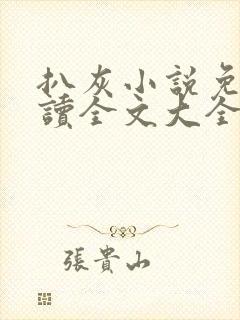 扒灰小説免
讀全文大全
張貴山